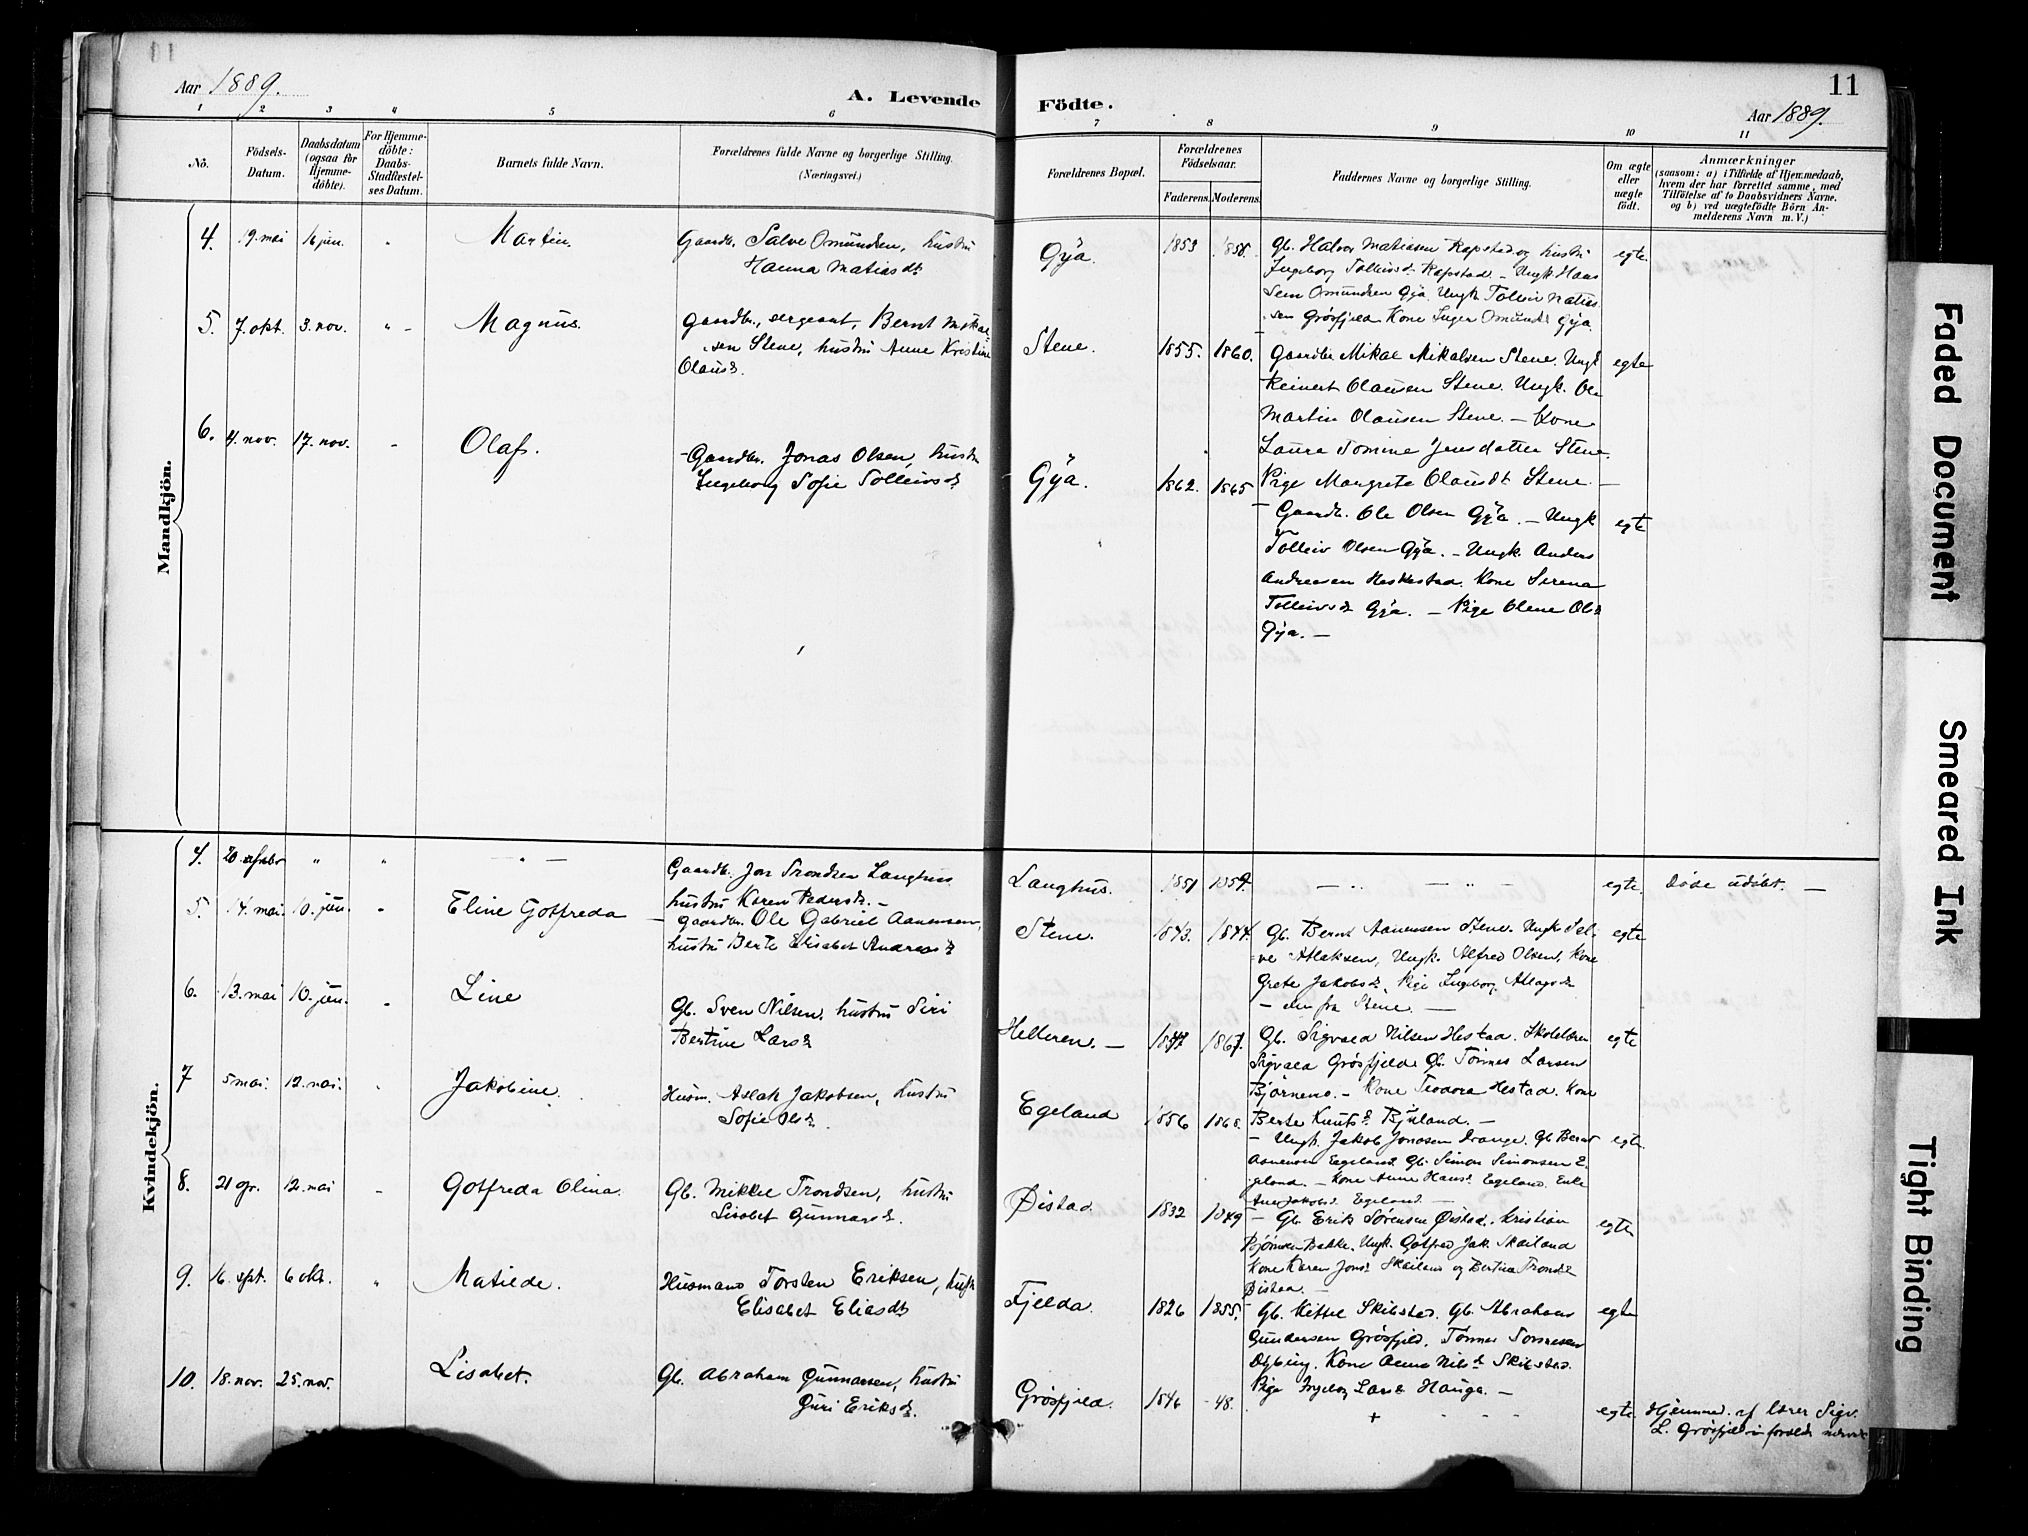 11
Aar 1889.
A. Levende Födte.
Aar 1889.
1 2 3 4 5 6 7 8 9 10 11
No.
Födsels-
Datum.
Daabsdatum
(ogsaa for
Hjemme-
döbte).
For Hjemme-
döbte:
Daabs-
Stadfæstel-
ses Datum.
Barnets fulde Navn.
Forældrenes fulde Navne og borgerlige Stilling.
(Næringsvei.)
Forældrenes Bopæl.
Forældrenes
Födselsaar.
Faderens. Moderens.
Faddernes Navne og borgerlige Stilling.
Om ægte
eller
uægte
födt.
Anmærkninger
(saasom: a) i Tilfælde af Hjemmedaab,
hvem der har forrettet samme, med
Tilföielse af to Daabsvidners Navne.
og b) ved uægtefödte Börn An-
melderens Navn m. V.)
Mandkjön.
4. 19. mai 16 jun. " Martin.
Gaardb. Salve Omundsen, hustru
Hanna Matiasdt.
Gya. 1853 1858.
Gb. Halvor Matiasen Rapstad og hustru
Ingeborg Tolleivsd. Rapstad. - Ungk Hans
Sem Omundsen Gya. Ungk Tolleiv Matias
sen Grösfjeld. Kone Inger Omunds Gya.
egte.
5. 7. okt. 3. nov. " Magnus.
Gaardbr., sergeant, Bernt Mikal
sen Stene, hustru Anne Kristine
Olausd.
Stene. 1855. 1860.
Gaardbr Mikal Mikalsen Stene. Ungk
Reinert Olausen Stene. Ungk. Ole
Martin Olausen Stene. - Kone
Laura Tomine Jensdatter Stene.
Pige Margrete Olausdt Stene. -
egte
6. 4. nov. 17. nov. - Olaf.
Gaardbr. Jonas Olsen, hustru
Ingeborg Sofie Tolleivsd.
Gya. 1862. 1865
- Gaardb. Ole Olsen Gya. - Ungk
Tolleiv Olsen Gya. - Ungk. Anders
Andreasen Heskestad. Kone Serena
Tolleivsd Gya. - Pige Olene Olsd
Gya. -
egte
Kvindekjön.
4. " " - " -
Gaardb. Jon Trondsen Langhus
hustru Karen Pedersd. -
Langhus. 1851 1859.
egte. Döde udöbt. -
5. 14. mai. 10. jun. " Eline Gotfreda
Gaardbr. Ole Gabriel Aanensen,
hustru Berte Elisabet Andreasd
Stene. 1843. 1844.
Gb. Bernt Aanensen Stene. Ungk Sal-
ve Atlaksen, Ungk. Alfred Olsen, Kone
Grete Jakobsd, Pige Ingeborg
- alle fra Stene. -
egte
6. 13. mai 10. jun. " Line
Gb. Sven Nilsen, hustru Siri
Bertine Larsd
Helleren. - 1867.
Gb. Sigvald Nilsen Hestad. Skolelærer
Sigvald Grösfjeld. Gb. Tönnes Larsen
Björnemo. - Kone Teodora Hestad. Kone
Berte Knutsd -
egte
7 5 mai. 12. mai. " Jakobine.
Husm. Aslak Jakobsen, hustru
Sofie Olsd.
Egeland 1856
- Ungk. Jakob Jonasen Drange. Gb Bernt
Aanensen Egeland. Gb. Simon Simonsen E-
geland. - Kone Anne Hansd Egeland. Enke
Jakobsd. Egeland. -
egte.
8. 21 12. mai - Gotfreda Olina.
Gb. Mikkel Trondsen, hustru
Lisabet Gunnarsd.
Øistad. 1832 1849
- Gb. Erik Sörensen Øistad. Kristian
Bakke. Ungk. Gotfred Jak. Skailand
Kone Karen Jonsd Skailand og Bertine Trondsd
Øistad. -
egte
9. 16. spt. 6 okt. " Matilde.
Husmand Torsten Eriksen,
Elisabet Eliasdt
Fjelda. 1826 1855.
Gb. Kittel Skibstad. Gb. Abraham
Gundersen Grösfjeld. Tönnes
Kone Anna Nilsd Skibstad.
Pige Ingeborg Larsd Hauge. -
egte
10. 18. nov. 25. nov. Lisabet.
Gb. Abraham Gunnarsen, hustru
Guri Eriksd.
Grösfjeld. 1846 - 48.
egte. Hjemmed. af lærer Sigv.
L. Grösfjeld
Faded Document
Smeared Ink
Tight Binding